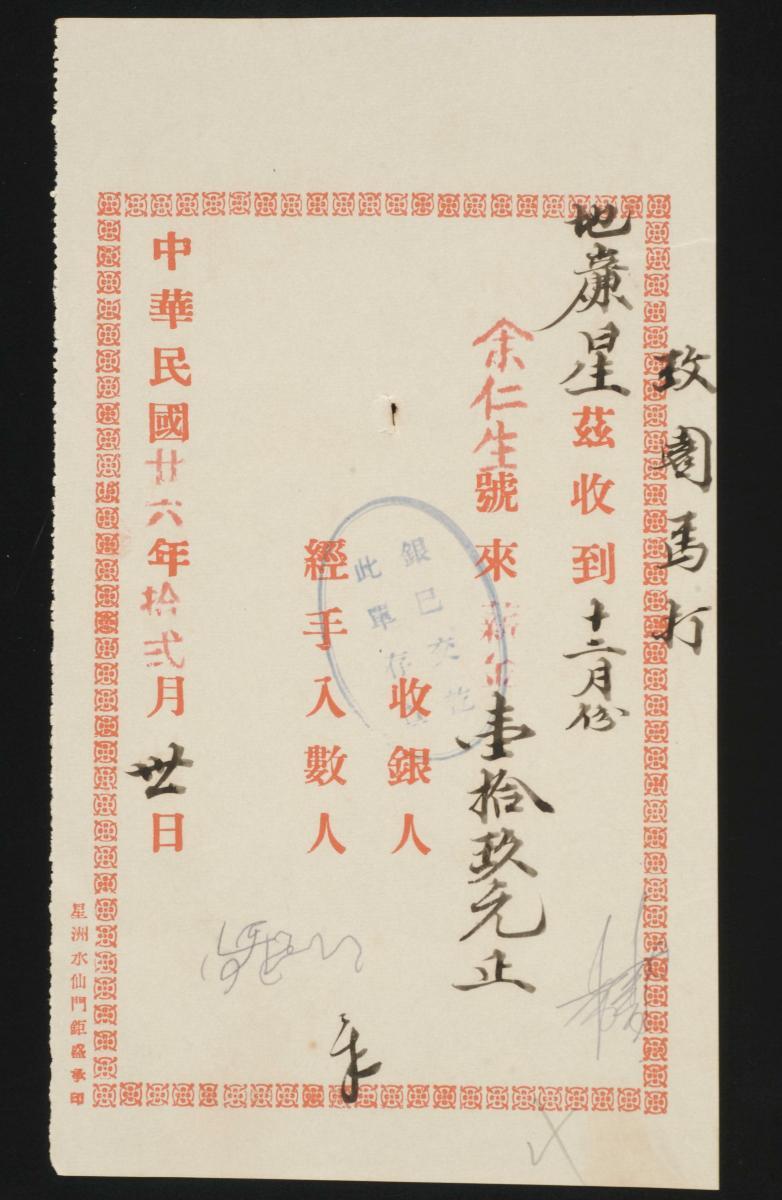 孜周馬打
地廉星茲收到十二月份
余仁生號來薪金壹拾玖元止
收銀人
經手入數人
中華民國廿六年拾弍月卅日
銀已交訖
此單存
星洲水仙門鉅盛承印